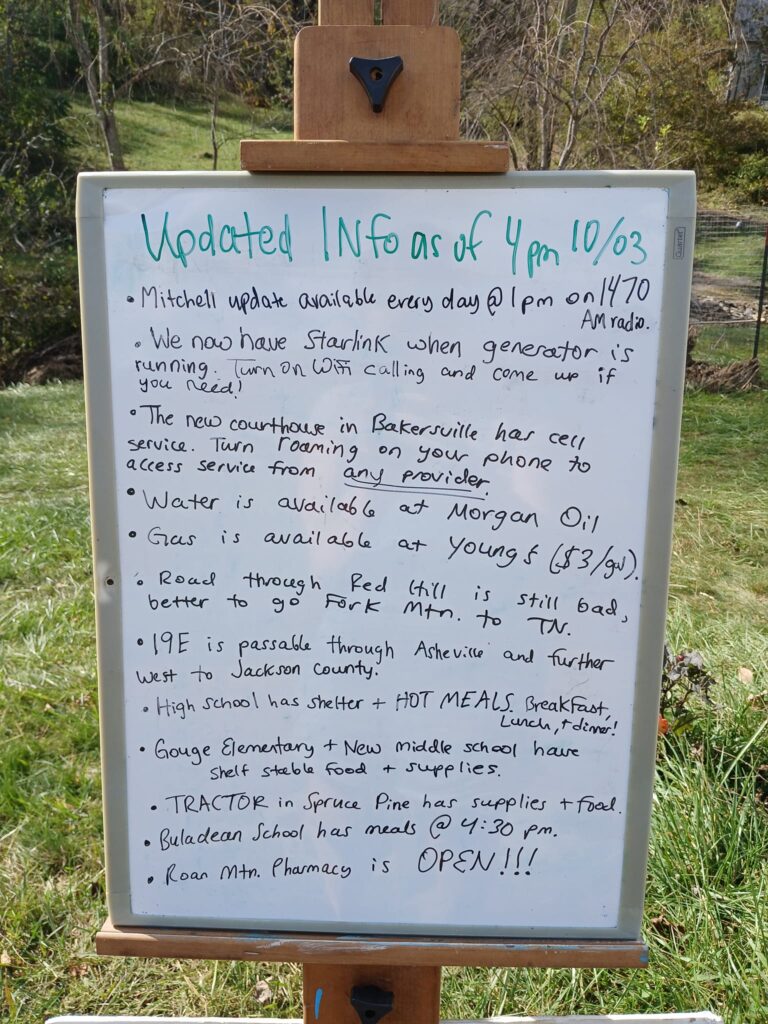 Updated INfo as of 4pm 10/03
• Mitchell update available every day @ 1pm on 1470
AM radio.
• We now have Starlink when generator is
running. Turn on Wifi calling and come up if
you need!
• The new courthouse in Bakersville has cell
service. Turn roaming on your phone to
access service from any provider.
• Water is available at Morgan Oil
• Gas is available at Youngs ($3/gal).
• Road through Red Hill is still bad,
better to go Fork Mtn. to TN.
• 19E is passable through Asheville and further
west to Jackson county.
• High school has shelter + HOT MEALS. Breakfast,
Lunch, + dinner!
• Gouge Elementary + New middle school have
shelf stable food + supplies.
• TRACTOR in Spruce Pine has supplies + food.
• Buladean School has meals @ 4:30 pm.
• Roan Mtn. Pharmacy is OPEN!!!
Quartet